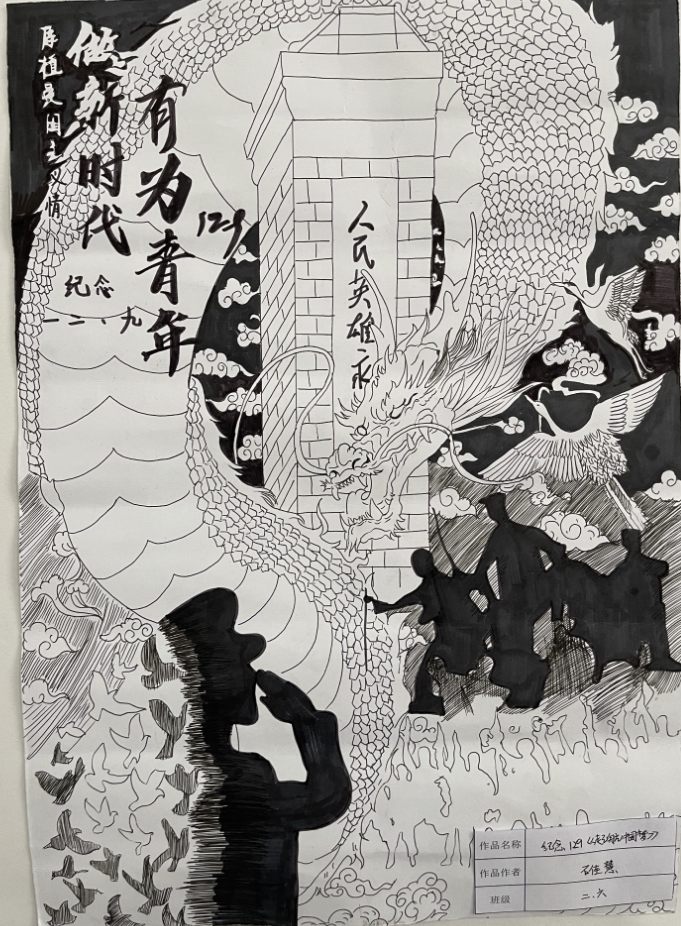 厚植爱国之双情
做新时代
有为青年
129
纪念
一二·九
人民英雄永
作品名称 纪念129《起航中国梦》
作品作者 石佳慧
班级 二.六